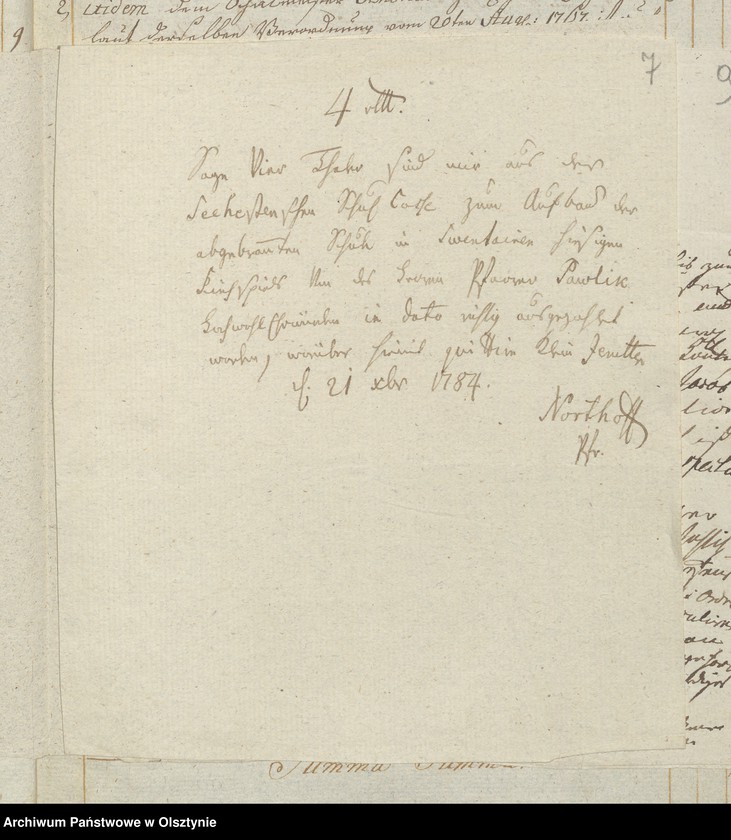 2, Eidem dem Schulmeister
laut derselben Verordnung vom 20ten Aug: 1787.
9
7
9
4 rtl.
Sage Vier Thaler sind mir aus der
Seehestenschen Schul Casse zum Aufbau der
abgebranten Schule in Swentainen hiesigen
Kirchspiels von des Herrn Pfarrer Pawlik
Hochwohlehrwürden in dato richtig ausgezahlt
worden, worüber hiemit quittire Klein Jerutten
d. 21 xbr 1784.
Northoff
Pfr.
Summa Summa.
Archiwum Państwowe w Olsztynie